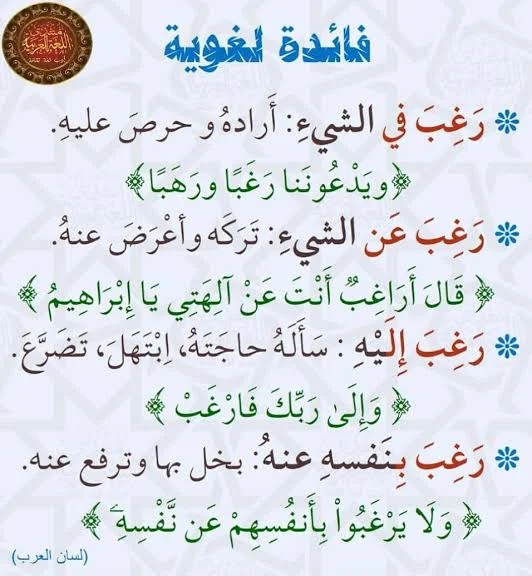 منتدى
اللغة العربية
فائدة لغوية
رَغِبَ في الشيءِ: أَرادهُ و حرصَ عليهِ.
﴿ويَدْعُونَنا رَغَبًا ورَهَبًا﴾
رَغِبَ عَن الشيءِ: تَرَكَه وأعْرَضَ عنهُ.
﴿ قَالَ أَرَاغِبٌ أَنْتَ عَنْ آلِهَتِي يَا إِبْرَاهِيمُ ﴾
رَغِبَ إِلَيْهِ : سَأَلَهُ حاجَتَهُ، اِبْتَهَلَ، تَضَرَّعَ.
﴿ وَإِلَىٰ رَبِّكَ فَارْغَبْ ﴾
رَغِبَ بِنَفسهِ عنهُ: بخل بها وترفع عنه.
﴿ وَلَا يَرْغَبُواْ بِأَنفُسِهِمْ عَن نَّفْسِهِۦ ﴾
(لسان العرب)